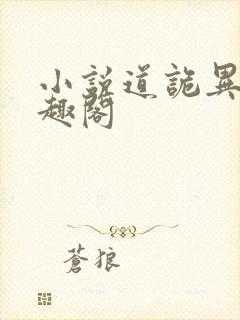 小说道詭異
趣閣
蒼狼